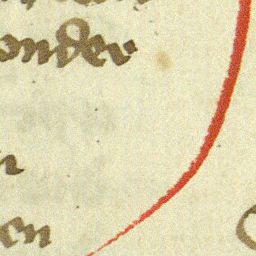 onder
n
en